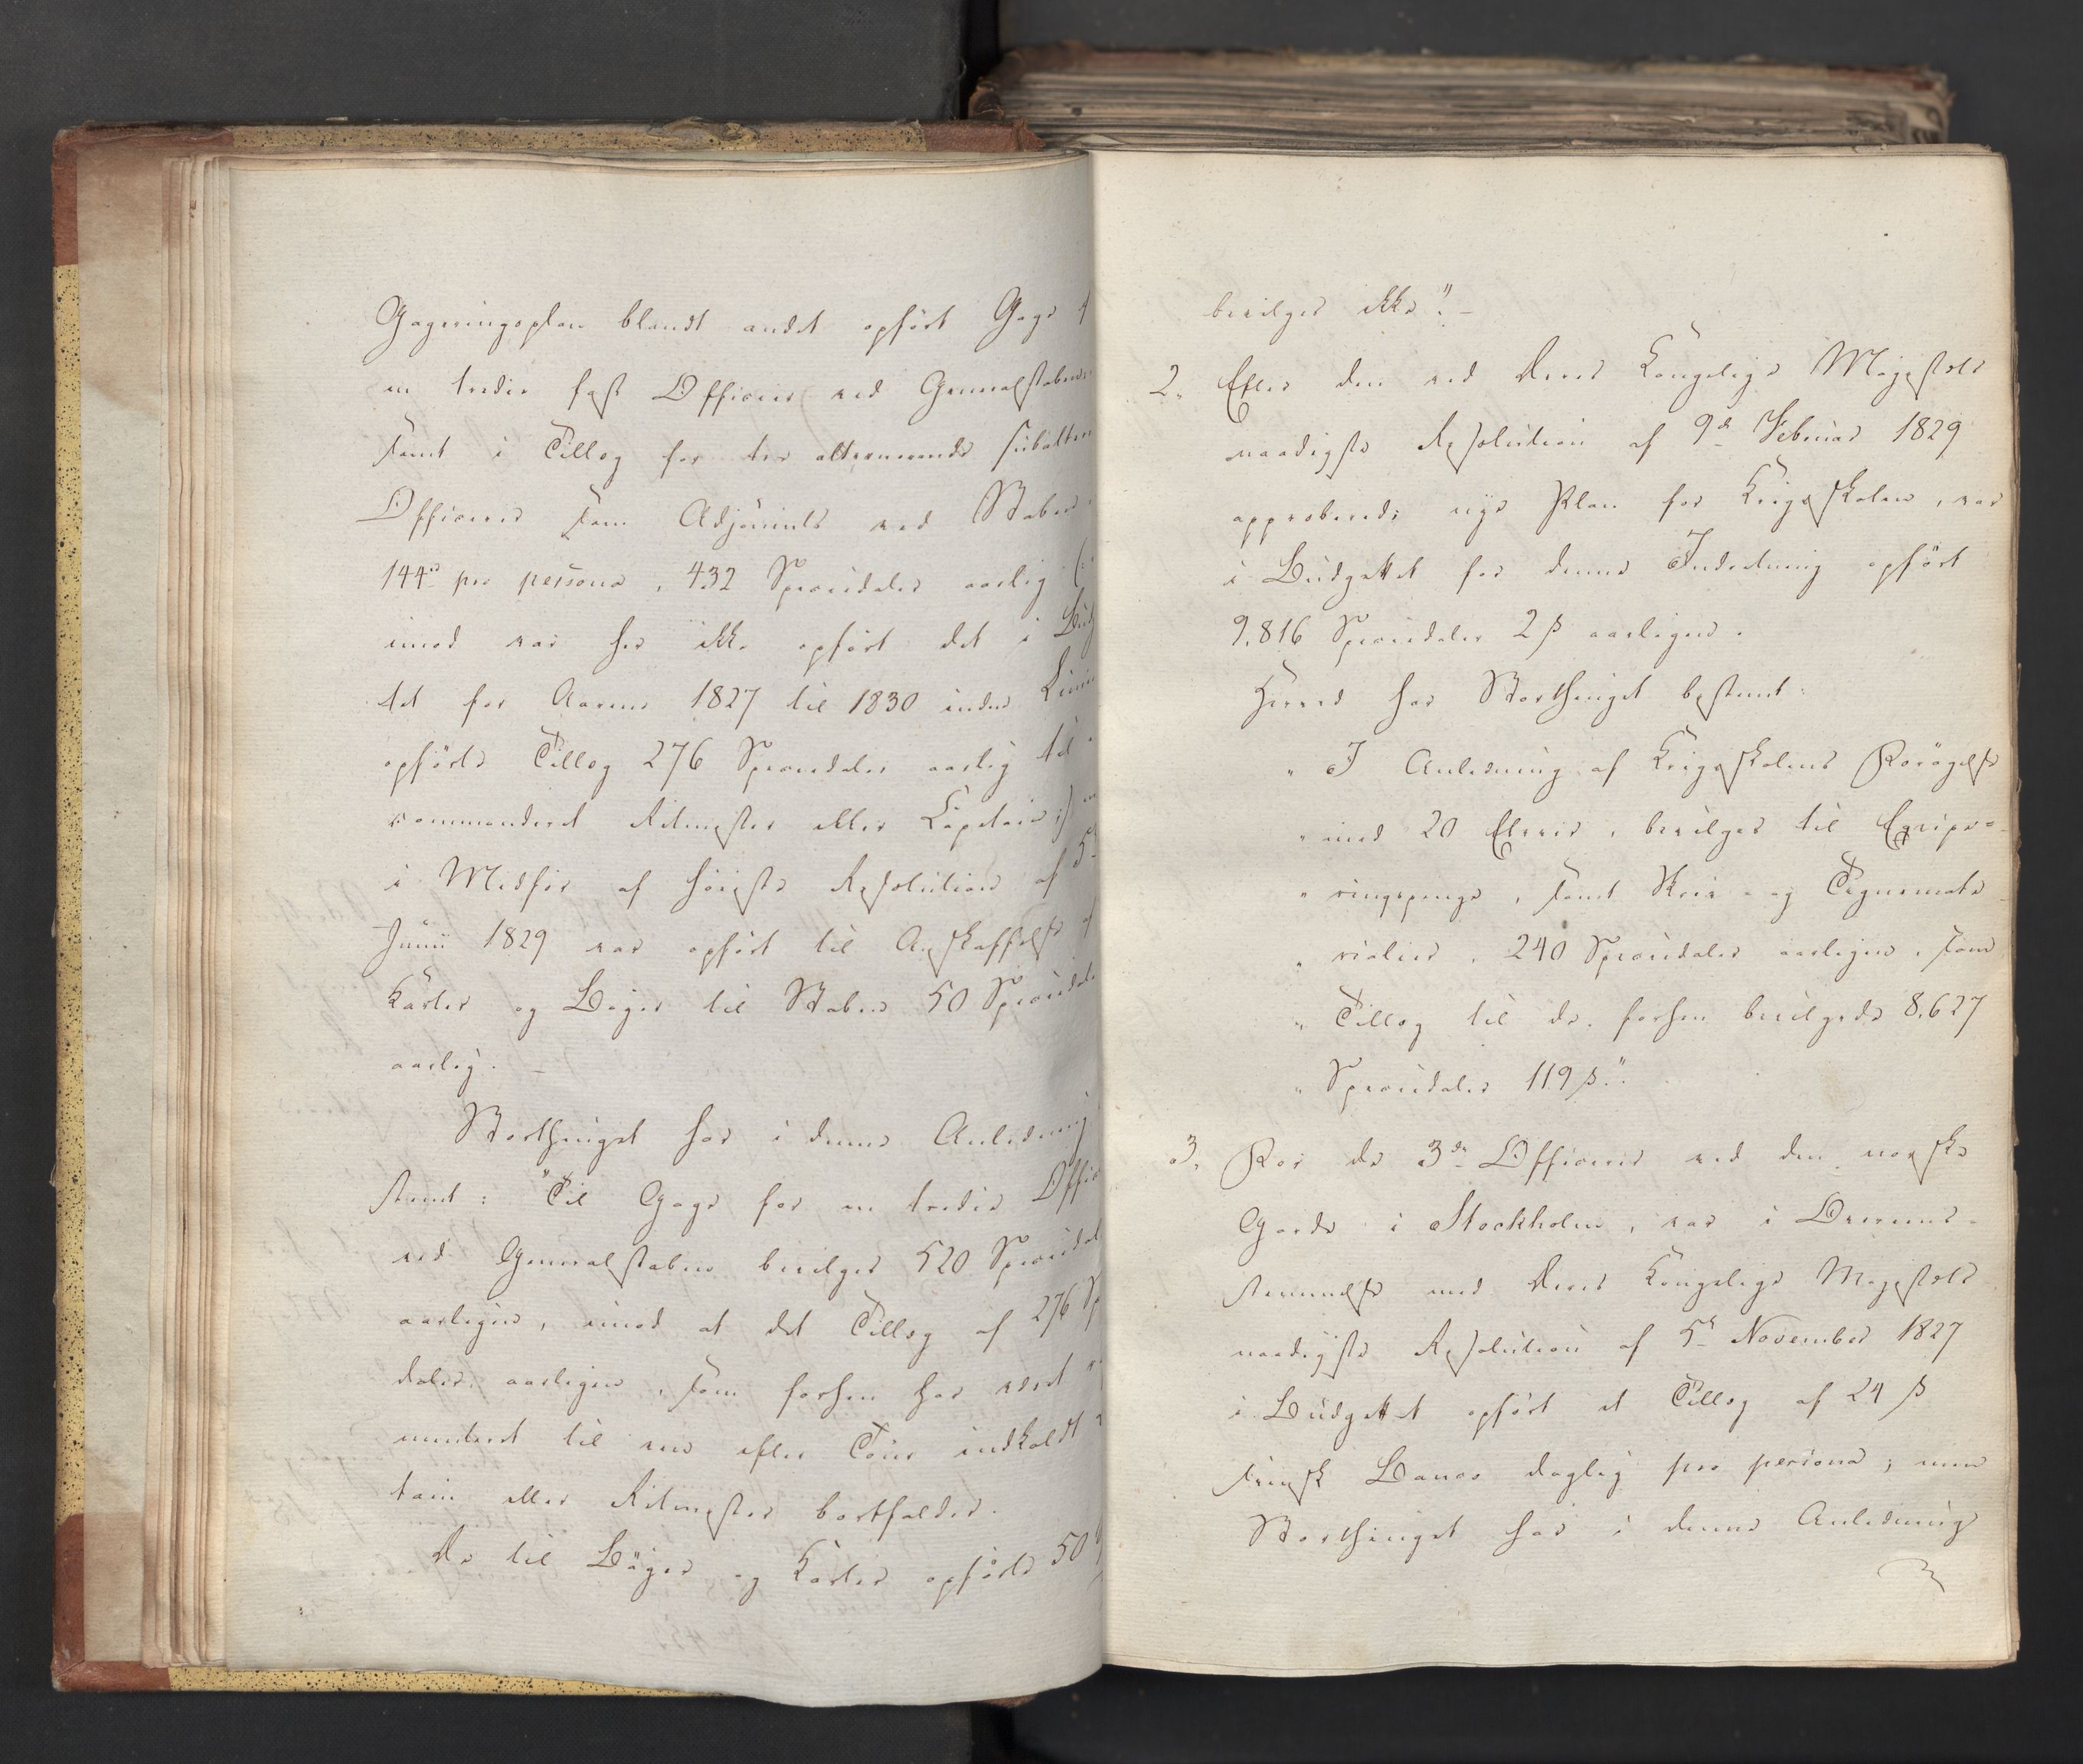 Gageringsplan blandt andet opført Gage f
en tredie fast Officeer ved Generalstaben
samt i Tillæg for tre alternerende subaltern
Officerer som Adjoints ved Staben
144 pro persona, 432 Speciedaler aarlig (:
imod var her ikke opført det i Bud
tet for Aarene 1827 til 1830 inden Linie
opførte Tillæg 276 Speciedaler aarlig til
commanderet Ritmester eller Capitain :)
i Medfør af høieste Resolution af 5
Junii 1829 var opført til Anskaffelse af
Karter og Bøger til Staben 50 Speciedale
aarlig. –
Storthinget har i denne Anledning
stemt: "Til Gage for en tredie Offic
ved Generalstaben bevilges 520 Speciedal
aarligen, imod at det Tillæg af 276 Sp
daler aarligen, som forhen har været
munderet til een efter Tour indkaldt
tain eller Ritmester bortfalder.
De til Bøger og Karter opførte 50
bevilges ikke". –
2. Efter den ved Deres Kongelige Majestæts
naadigste Resolution af 9de Februar 1829
approberede nye Plan for Krigsskolen, var
i Budgettet for denne Indretning opført
9,816 Speciedaler 2 ß aarligen.
Herved har Storthinget bestemt:
" I Anledning af Krigsskolens Forøgelse
" med 20 Elever, bevilges til Equipe-
" ringspenge, samt Skriv- og Tegnemate-
" rialier, 240 Speciedaler aarligen, som
" Tillæg til de forhen bevilgede 8,627
" Speciedaler 119 ß.".
3. For de 3de Officerer ved den norske
Garde i Stockholm, var i Overeens-
stemmelse med Deres Kongelige Majestæts
naadigste Resolution af 5te November 1827
i Budgettet opført et Tillæg af 24 ß
svensk Banco daglig pro persona; men
Storthinget har i denne Anledning